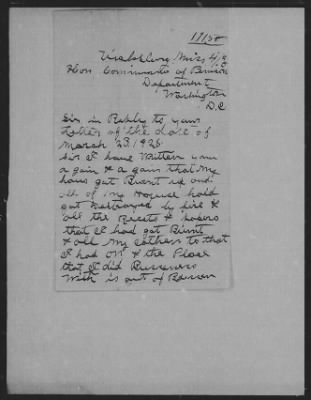 Vicksburg Miss 4/2
Hon Commissioner of Pension
Department
Washington
D.C
Sir in Reply to your
Letter of the date of
March 23. 1925
Sir I have Written you
a gain & a gain that My
hous got Burnt up and
all of my House hold
got Destroyed by fire &
all the Riceets & Papers
that I had got Burnt
& all My Clothers to that
I had on & the Place
that I did Bussness
With is out of